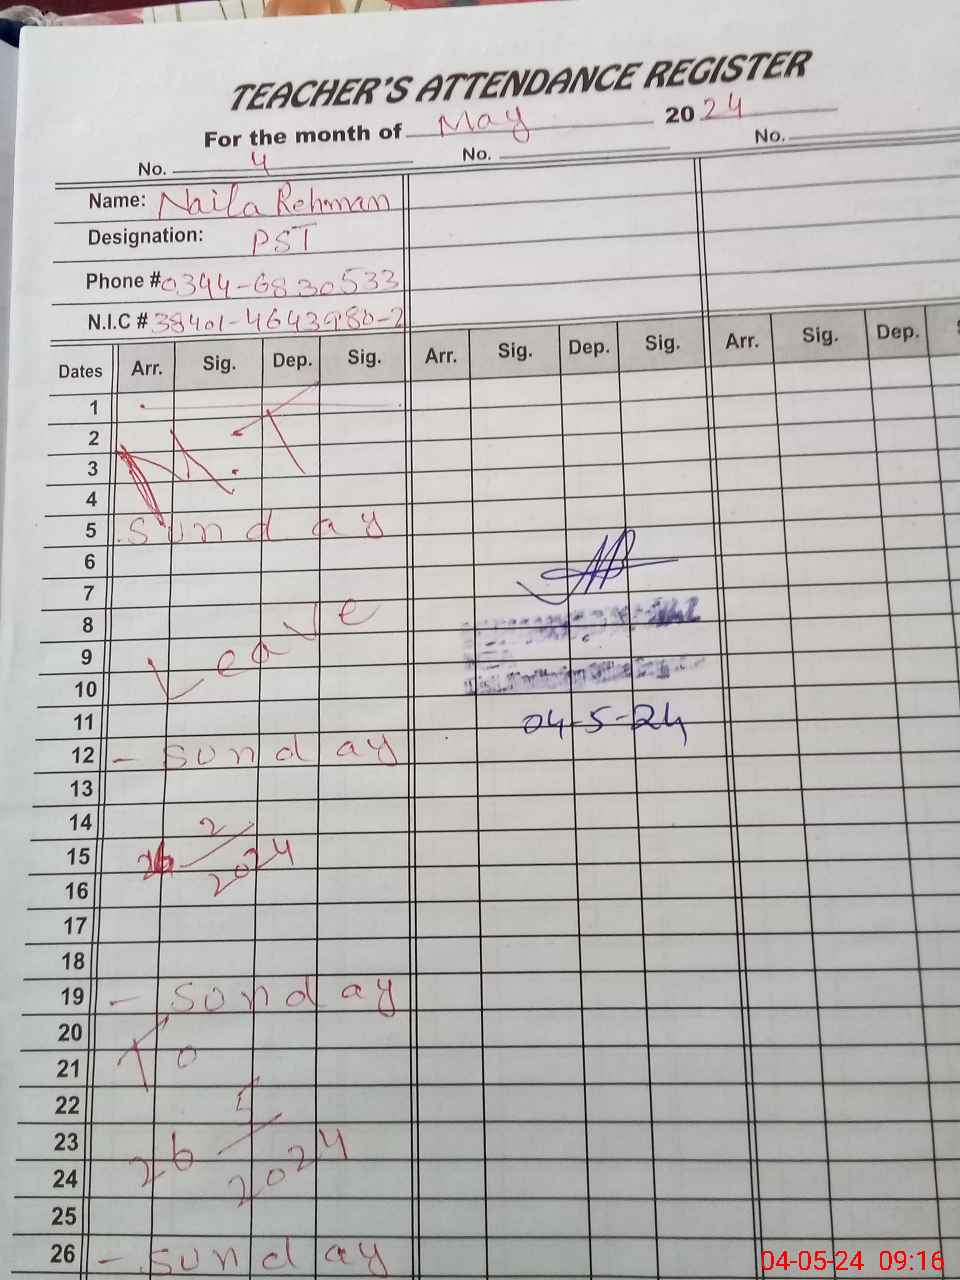 TEACHER'S ATTENDANCE REGISTER
For the month of May 2024
No. 4 No. No.
Name: Naila Rehman
Designation: PST
Phone # 0344-6830533
N.I.C # 38401-4643980-2
Dates Arr. Sig. Dep. Sig. Arr. Sig. Dep. Sig. Arr. Sig. Dep.
1
2
3
4
5 Sunday
6
7
8
9 Leave
10
11 04-5-24
12 - Sunday
13
14
15 26/2/2024
16
17
18
19 - Sunday
20
21 To
22
23 26/5/2024
24
25
26 - Sunday
04-05-24 09:16